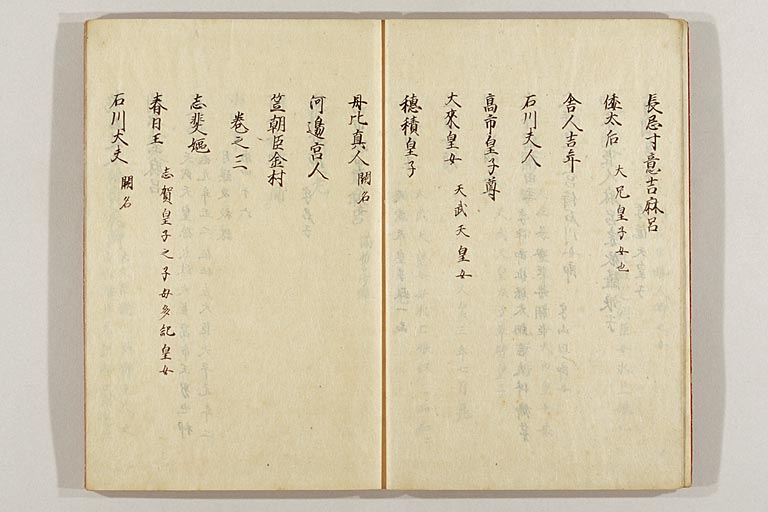 長忌寸意吉麻呂
倭太后 大兄皇子女也
舎人吉年
石川夫人
高市皇子尊
大來皇女 天武天皇女
穗積皇子
丹比真人 闕名
河邊宮人
笠朝臣金村
卷之三
志斐嫗
春日王 志賀皇子之子母多記皇女
石川大夫 闕名